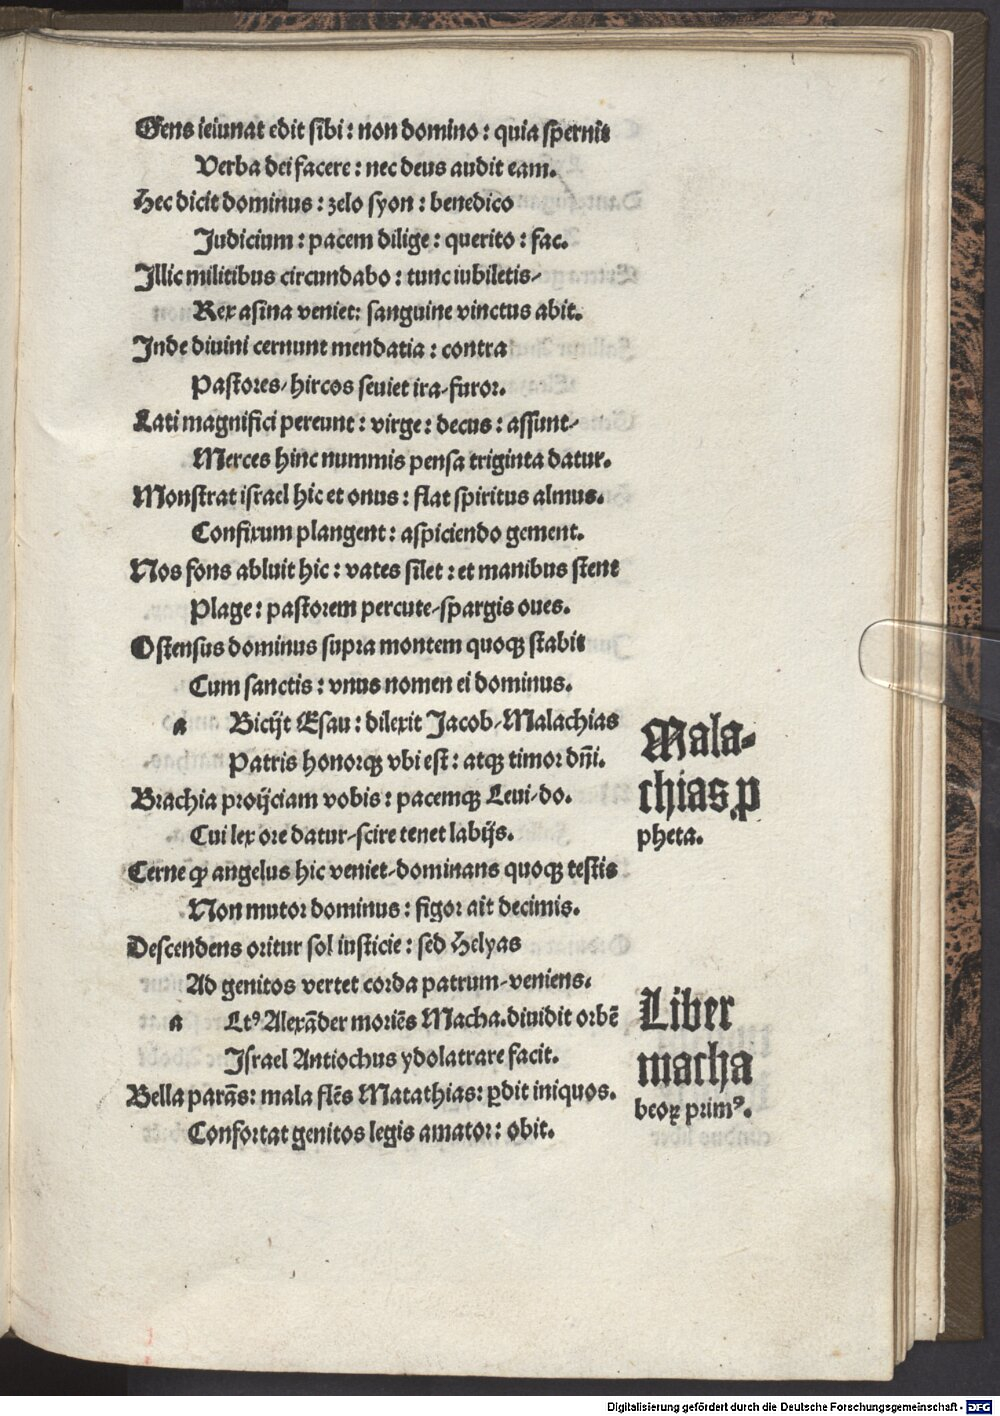 Gens ieiunat edit sibi : non domino : quia spernit
Verba dei facere : nec deus audit eam.
Hec dicit dominus : zelo syon : benedico
Judicium : pacem dilige : querito : fac.
Illic militibus circundabo : tunc iubiletis/
Rex asina veniet: sanguine vinctus abit.
Inde diuini cernunt mendatia : contra
Pastores/ hircos seuiet ira/furor.
Lati magnifici pereunt : virge : decus : assunt/
Merces hinc nummis pensa triginta datur.
Monstrat israel hic et onus : flat spiritus almus.
Confixum plangent : aspiciendo gement.
Nos fons abluit hic : vates silet : et manibus stent
Plage : pastorem percute/spargis oues.
Ostensus dominus supra montem quoqꝫ stabit
Cum sanctis : vnus nomen ei dominus.
a Bicijt Esau : dilexit Jacob/Malachias
Patris honorqꝫ vbi est : atqꝫ timor dn̄i.
Brachia proijciam vobis : pacemqꝫ Leui/do.
Cui lex ore datur/scire tenet labijs.
Cerne ꝙ angelus hic veniet/dominans quoqꝫ testis
Non mutor dominus : figor ait decimis.
Descendens oritur sol iusticie : sed Helyas
Ad genitos vertet corda patrum/veniens.
a Ltꝰ Alexāder moriēs Macha.diuidit orbē
Israel Antiochus ydolatrare facit.
Bella parās: mala flēs Matathias: ꝑdit iniquos.
Confortat genitos legis amator: obit.
Mala-
chias ꝓ
pheta.
Liber
macha
beoꝝ primꝰ.
Digitalisierung gefördert durch die Deutsche Forschungsgemeinschaft - DFG